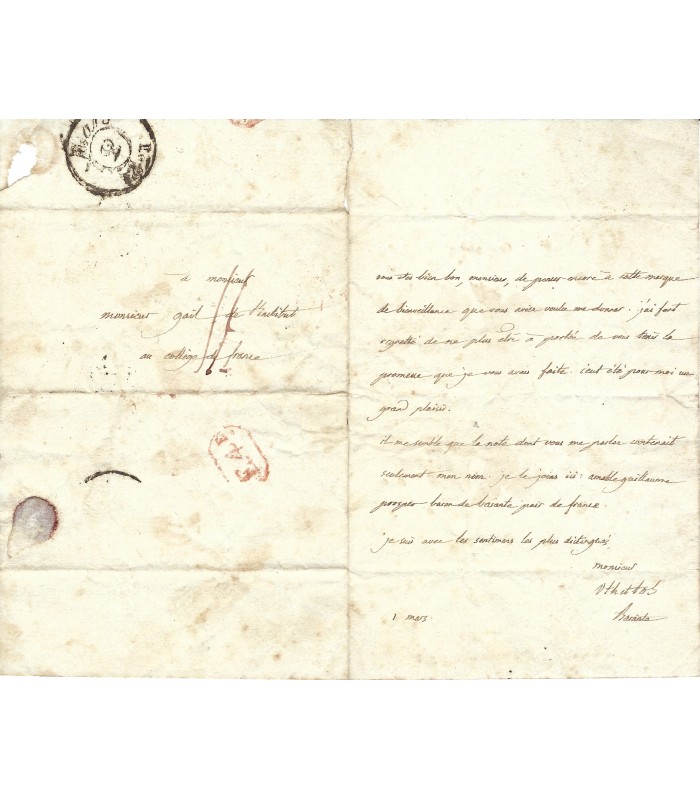 à monsieur
monsieur gail de l'institut
au collège de france
vous êtes bien bon, monsieur, de penser encore à cette marque
de bienveillance que vous aviez voulu me donner. j'ai fort
regretté de ne plus être à portée de vous tenir la
promesse que je vous avais faite. c'eut été pour moi un
grand plaisir.
il me semble que la note dont vous me parlez contenait
seulement mon nom. je le joins ici: amable guillaume
prosper baron de barante pair de france.
je suis avec les sentimens les plus distingués,
monsieur
V th et ob S
Barante
1 mars.